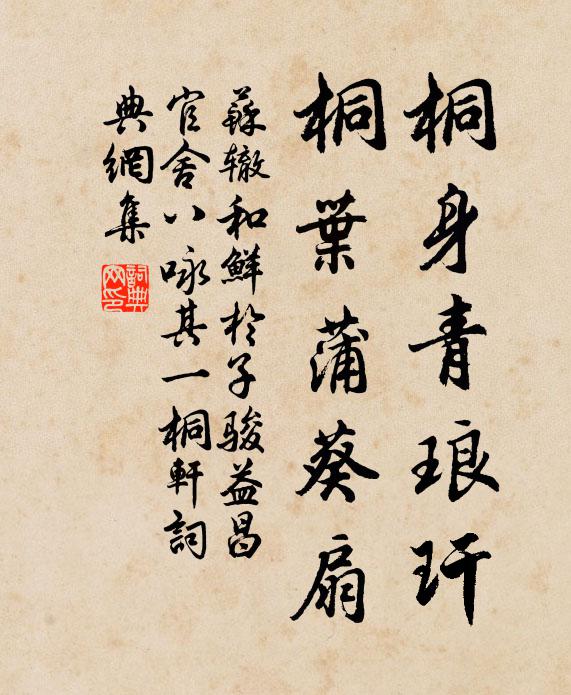 桐身青琅玕
桐葉蒲葵扇
蘇辙和鮮於子骏益昌
官舍八咏其一桐軒詞
典網集
詞典网印